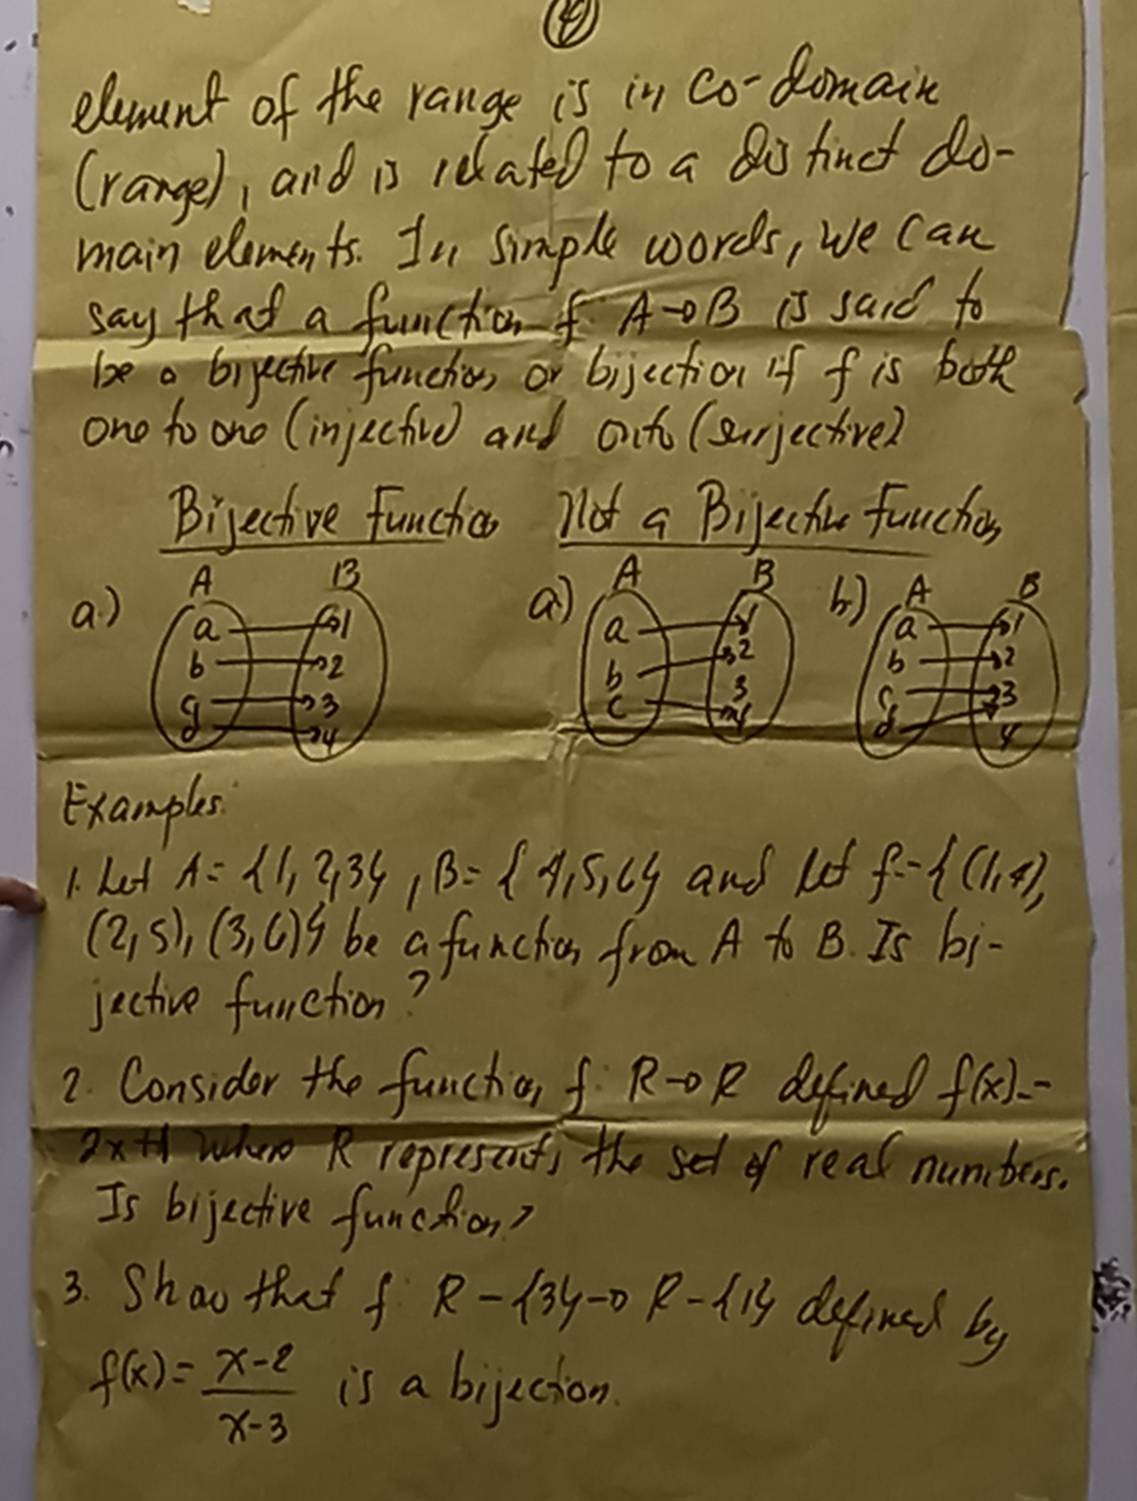 4
element of the range is in co-domain
(range), and is related to a distinct do-
main elements. In simple words, we can
say that a function f: A→B is said to
be a bijective function or bijection if f is both
one to one (injective) and onto (surjective)
Bijective Function Not a Bijective Function
a.) A B a.) A B b.) A B
a 1 a 1 a 1
b 2 b 2 b 2
c 3 c 3 c 3
d 4 4 d 4
Examples:
1. Let A = {1, 2, 3}, B = {4, 5, 6} and let f = {(1, 4),
(2, 5), (3, 6)} be a function from A to B. Is bi-
jective function?
2. Consider the function f: R→R defined f(x) =
2x+1 where R represents the set of real numbers.
Is bijective function?
3. Show that f: R - {3} → R - {1} defined by
f(x) = x-2
x-3 is a bijection.